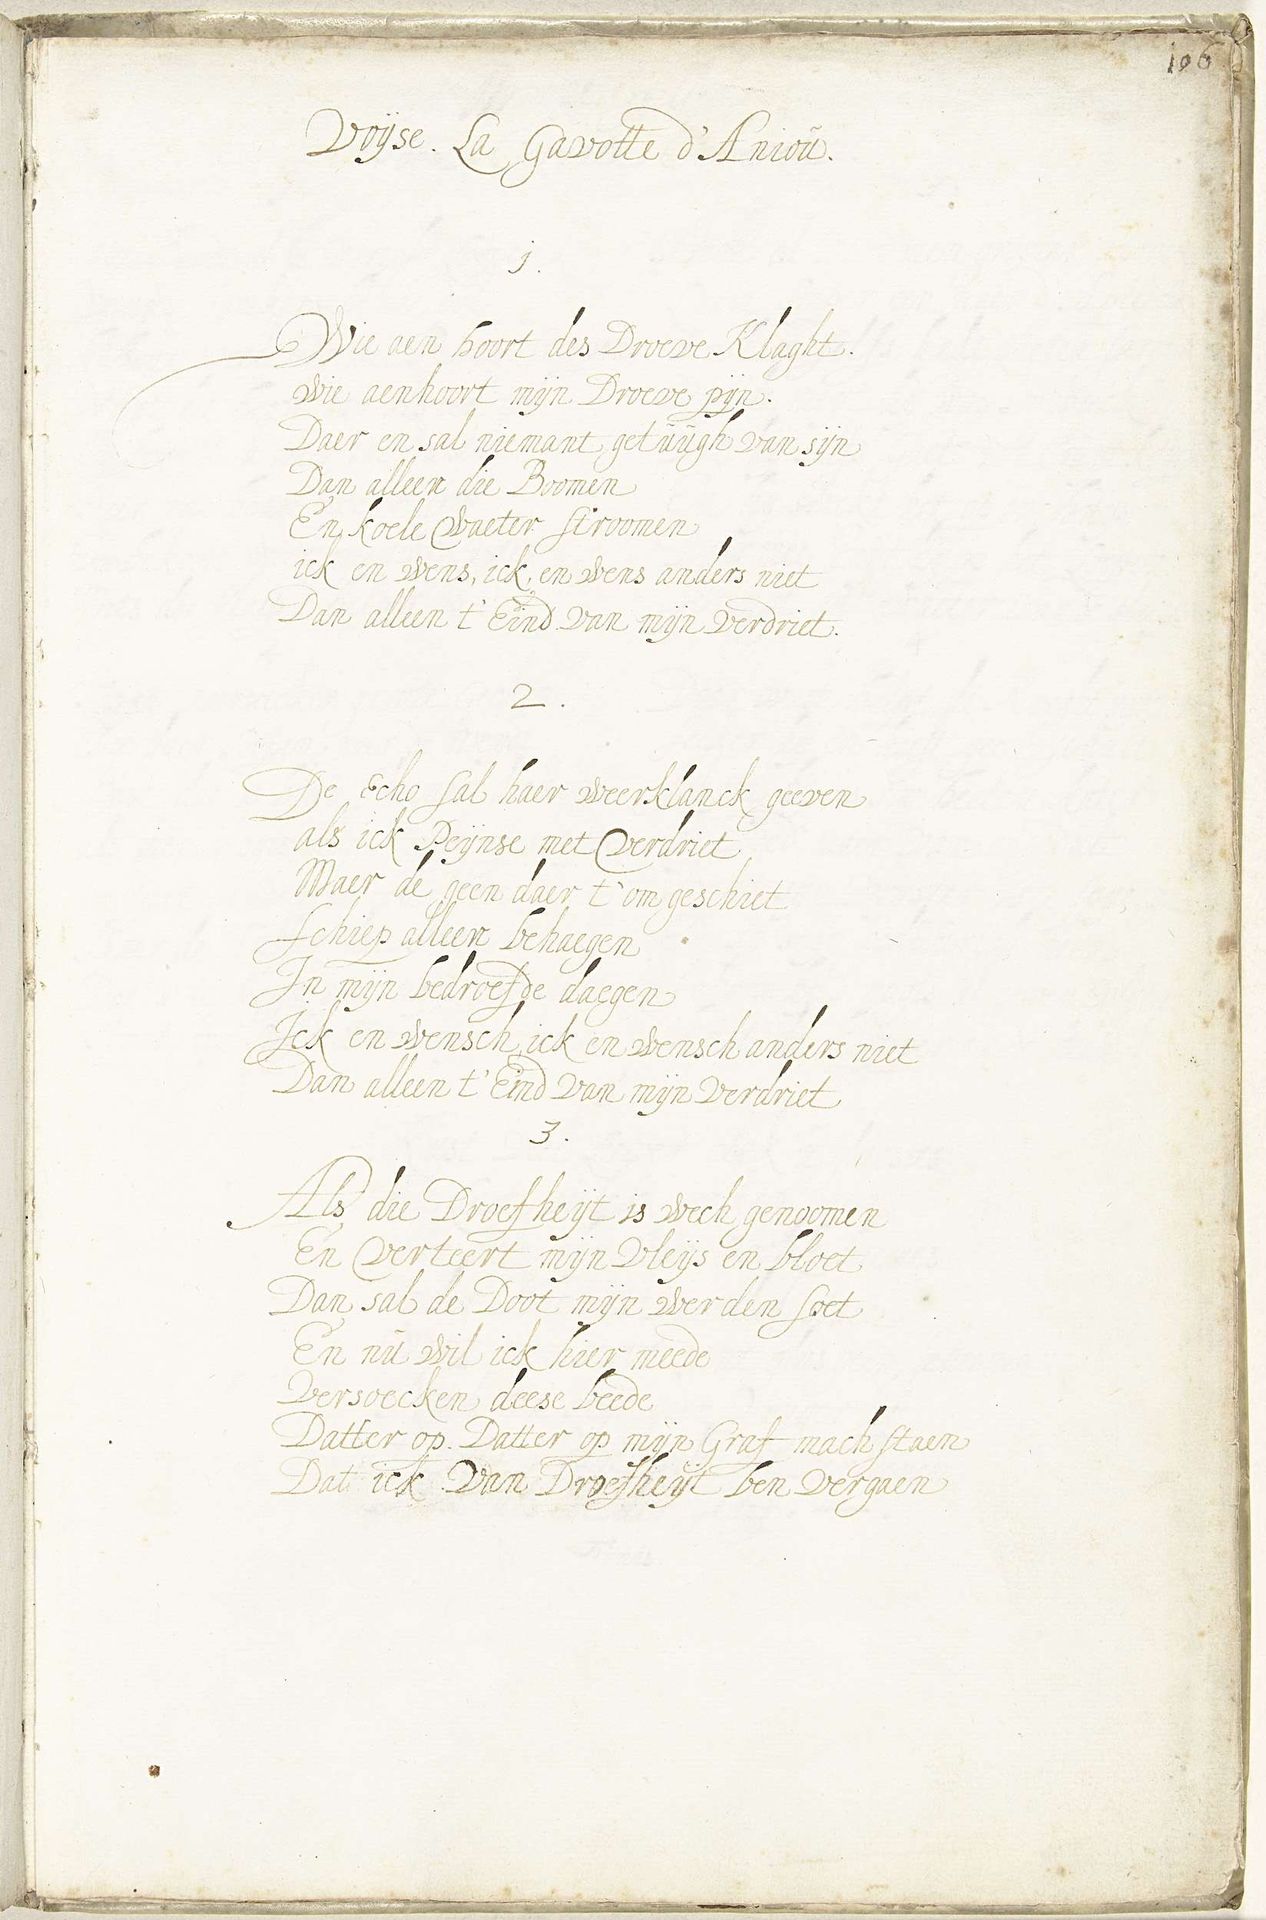 106
Voÿse. La Gavotte d'Anioũ.
1.
Wie aen hoort des Droeve Klaght.
wie aenhoort mijn Droeve pijn.
Daer en sal niemant getũũgh van sijn
Dan alleen die Boomen
En koele waeter stroomen
ick en wens, ick, en wens anders niet
Dan alleen t' Eind van mijn verdriet.
2.
De Echo sal haer weerklanck geeven
als ick Peÿnse met verdriet
Maer de geen daer t' om geschiet
schiep alleen behaegen
In mijn bedroefde daegen
Ick en wensch, ick en wensch anders niet
Dan alleen t' Eind van mijn verdriet
3.
Als die Droefheÿt is wech genoomen
En verteert mijn vleÿs en bloet
Dan sal de Doot mijn werden soet
En nũ wil ick hier meede
versoecken deese beede
Datter op. Datter op mijn Graf mach staen
Dat ick van Droefheÿt ben vergaen